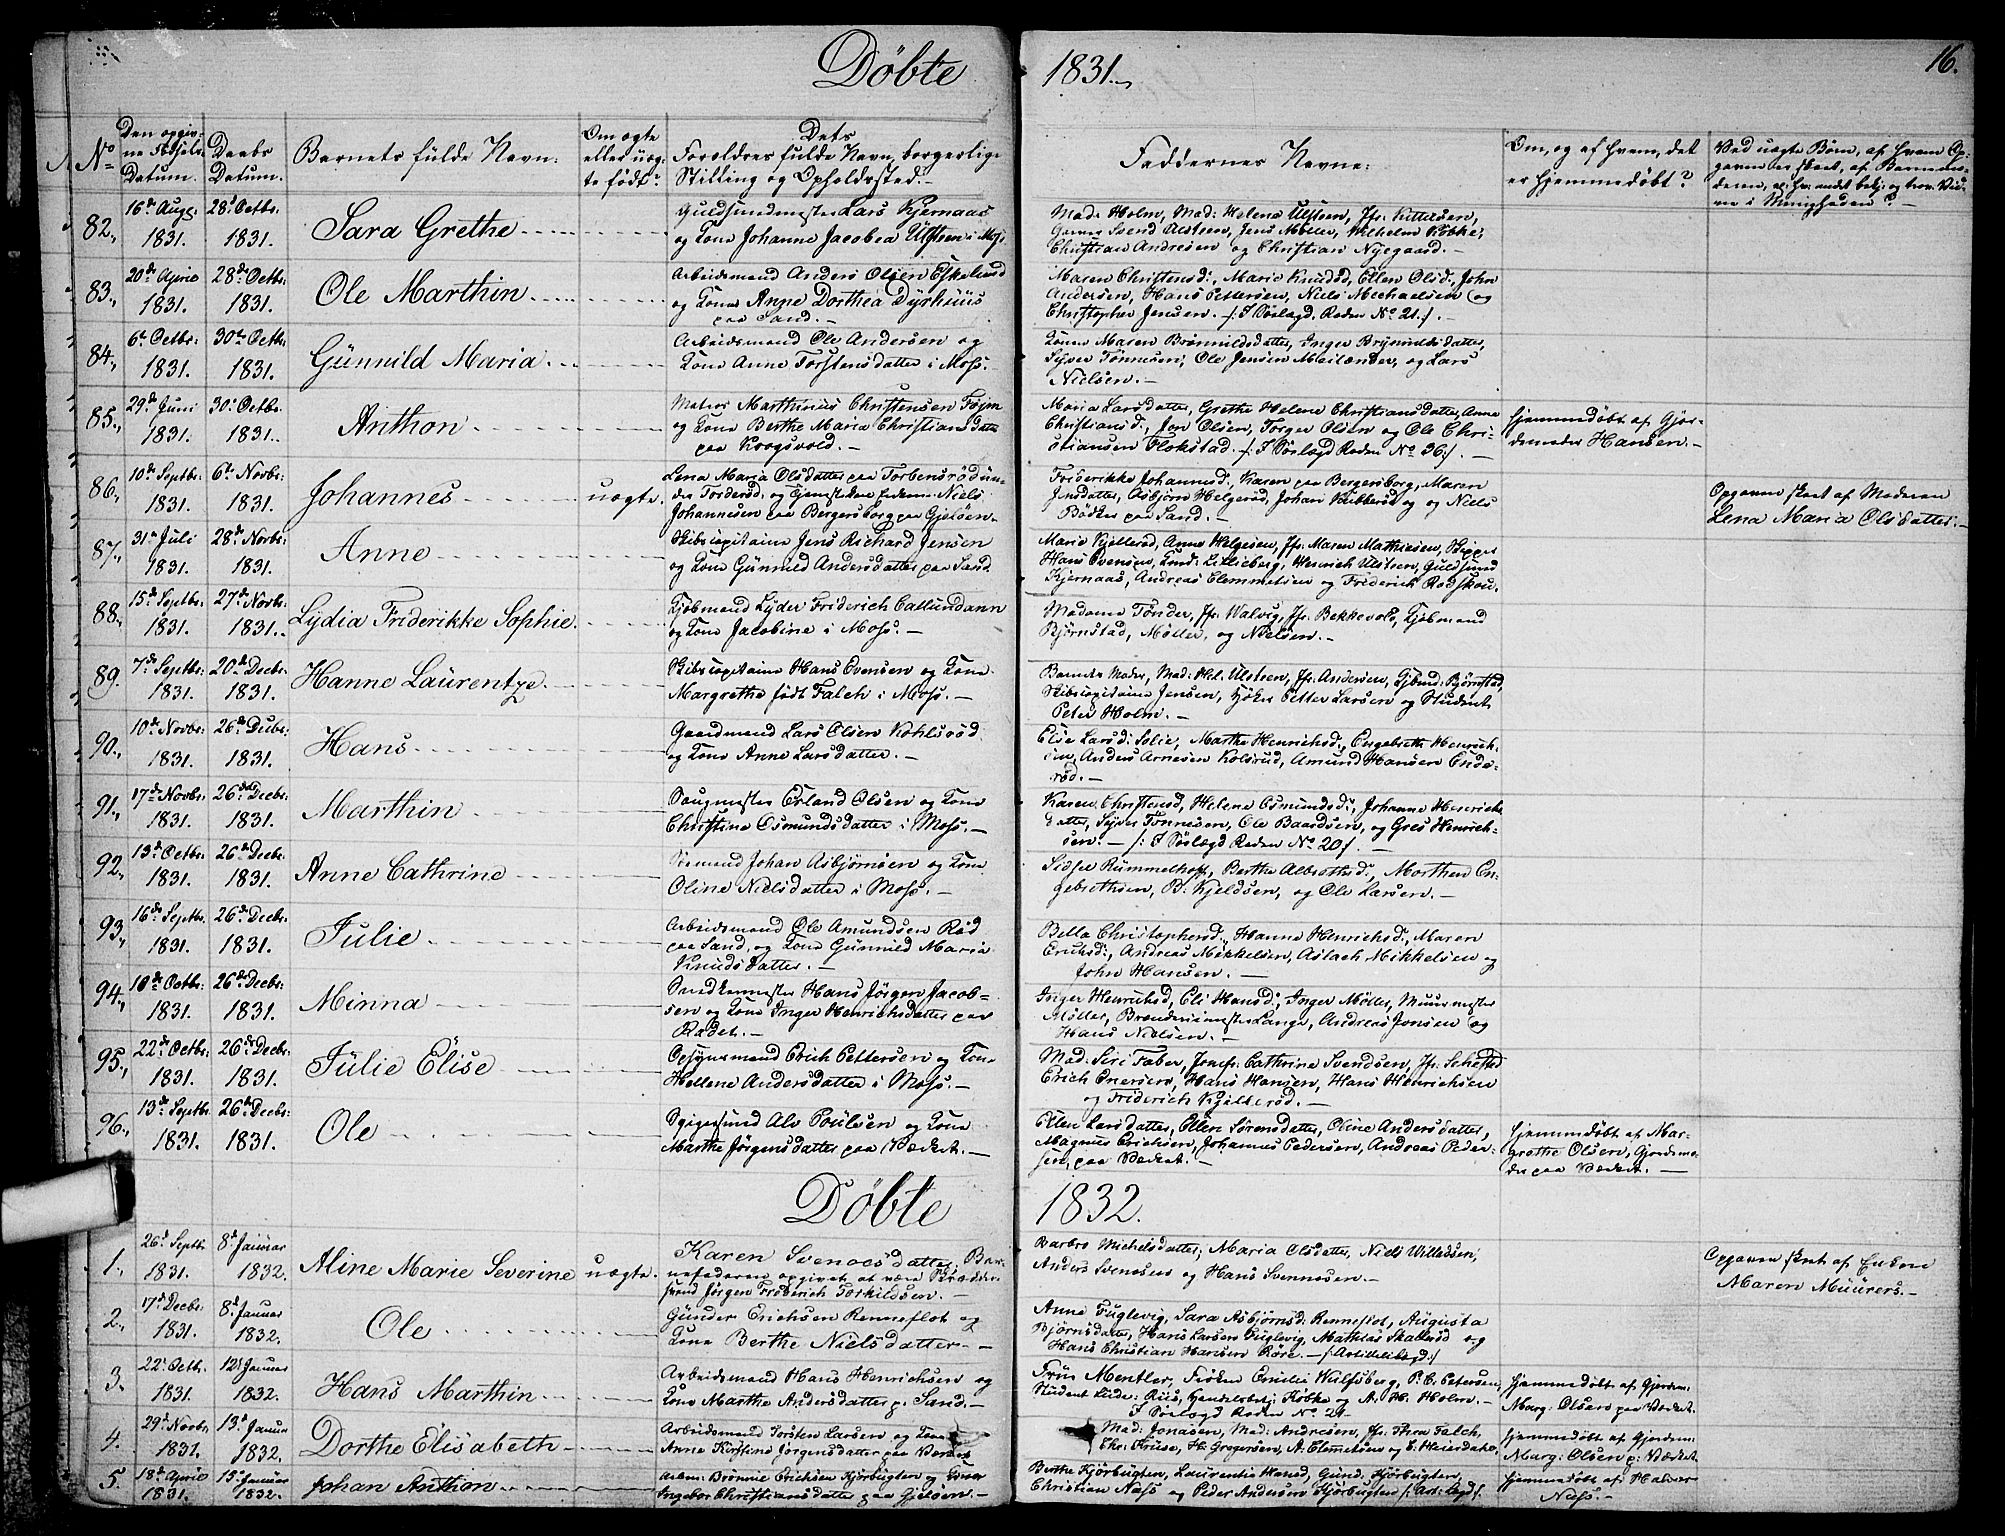 Døbte 1831.
16.
No
Den opgiv-
ne Fødsels-
Datum.
Daabs
Datum.
Barnets fulde Navn:
Om ægte
eller uæg-
te født?
Dets
Forældres fulde Navn, borgerlige
Stilling og Opholdssted.—
Faddernes Navne:
Om, og af hvem, det
er hjemmedøbt?
Ved uægte Børn, af hvem Op-
82., 16de Aug: 1831. 28d Octbr. 1831. Sara Grethe
Guldsmedmester Lars Kjernaas
og Kone Johanne Jacobea Ulstern i Moss
Mad: Holm, Mad: Helena Ulsteen, Jfr: Kittelsen,
Svend Ulstsen, Jens Møller, Wilhelm Kobke,
Christian Andresen og Christian Nyegaard.—
83., 20de April 1831. 28de Octbr: 1831. Ole Marthin
Arbeidsmand Anders Olsen Eskelund
og Kone Anne Dorthea Dyrhuus
paa Sand.—
Maren Christensd:, Marie Knudsd, Ellen Olsd., John
Andersen, Hans Pettersen, Niels Mechaelsen og
Christopher Jensen.— /: I Sørlægd. Roden No 21./.—
84., 6te Octbr: 1831. 30te Octbr. 1831. Gunnild Maria
Arbeidsmand Ole Andersen og
Kone Anne Torstensdatter i Moss.—
Kone Maren Brønnildsdatter, Inger Brynnildsdatter,
Syver Tønnesen, Ole Jensen Meilænder, og Lars
Nielsen.—
85., 29de Juni 1831. 30te Octbr. 1831. Anthon
Matros Marthinus Christensen
og Kone Berthe Maria Christiansdatter
paa Krogsvold.—
Maria Larsdatter, Grethe Helene Christiansdatter, Anne
Christiansd:, Jon Olsen, Torger Olsen og Ole Chri-
stiansen Flokstad. /: I Sørlægd Roden No 36:/.—
Hjemmedøbt af Gjor-
demoder Hansen.—
86., 10de Septbr: 1831. 6te Novbr: 1831. Johannes uægte.
Lena Maria Olsdatter paa Torbensrød un-
der Torderød, og Tjenestekarl Niels
Johannesen paa Bergersborg paa Gjeløen.
Frederikke Johannesd:, Karen paa Bergersborg, Maren
Jensdatter, Asbjørn Helgerød, Johan Kubberød og Niels
Bødker paa Sand.—
Opgaven skeet af Moderen
Lena Maria Olsdatter.—
87., 31te Juli 1831. 28de Novbr: 1831. Anne
Skibscapitaine Jens Richard Jensen
og Kone Gunnild Andersdatter paa Sand
Marie Kjellerød, Anne Helgesen, Jfr: Maren Mathiesen, Skipper
Hans Evensen, Lillieberg, Henrich Ulsteen, Guldsmed
Kjernaas, Andreas Clemmetsen og Frederich Rodskou.
88., 15de Septbr: 1831. 27de Novbr: 1831. Lydia Friderikke Sophie.
Kjøbmand Lyder Friderich Catlundann
og Kone Jacobine i Moss.—
Madame Tønder, Jfr: Walvig, Jfr. Bekkevold, Kjøbmand
Bjørnstad, Møller, og Nielsen.—
89. 7de Septbr: 1831. 20de Decbr: 1831. Hanne Laurentze.
Skibscapitaine Hans Evensen og Kone
Margrethe født Falch i Moss.—
Barnets Moder, Mad: Hel. Ulsteen, Jfr. Andersen, Kjbmd: Bjørnstad,
Skibscapitaine Jensen, Høker Petter Larsen og Student
Peter Holm.—
90., 10de Novbr: 1831. 26de Decbr: 1831. Hans
Gaardmand Lars Olsen Kohlsrød
og Kone Anne Larsdatter.—
Else Larsd: Solie, Marthe Henrichsd:, Engebreth Henrich-
sen, Anders Arnesen Kolsrud, Amund Hansen Ende-
rød.—
91., 17de Novbr: 1831. 26de Decbr: 1831. Marthin
Saugmester Erland Olsen og Kone
Christine Osmundsdatter i Moss.—
Karen Christensd, Helene Osmundsd:, Johanne Henrichs-
datter, Syver Tønnesen, Ole Baardsen, og Gres Henrich-
sen.— /: I Sørlægd Roden No 20/.—
92., 13de Octbr: 1831. 26de Decbr: 1831. Anne Cathrine
Sømand Johan Asbjørnsen og Kone
Oline Nielsdatter i Moss.—
Sidse Rummelhoff, Berthe Albrethsd:, Morthen En-
gebrethsen, B. Kjeldsen, og Ole Larsen.—
93., 16de Septbr. 1831. 26de Decbr: 1831. Julie
Arbeidsmand Ole Amundsen Rød
paa Sand, og Kone Gunnild Maria
Knudsdatter.—
Bella Christophersd:, Hanne Henrichsd:, Maren
Erichsd:, Andreas Mikkelsen, Aslach Mikkelsen og
John Hansen.—
94., 10de Octbr: 1831. 26de Decbr: 1831. Minna
Snedkermester Hans Jørgen Jacob-
sen og Kone Inger Henrichsdatter paa
Rødet.—
Inger Henrichsd, Eli Hansd:, Inger Møller, Muurmester
Møller, Brænderimester Lange, Andreas Jonsen og
Hans Nielsen.—
95., 22de Octbr: 1831. 26de Decbr: 1831. Julie Elise
Opsynsmand Erich Pettersen og Kone
Hellene Andersdatter i Moss.—
Mad: Siri Faber, Jomfr: Cathrine Svendsen, Jfr: Schefted
Erich Enersen, Hans Hansen, Hans Henrichsen
og Friderich Kjellerød.—
96., 13de Septbr. 1831. 26de Decbr: 1831. Ole
Spigersmed Alv Poulsen og Kone
Marthe Jørgensdatter paa Værket.—
Ellen Larsdatter, Ellen Sørensdatter, Oline Andersdatter,
Magnus Erichsen, Johannes Pedersen, Andreas Peder-
sen, paa Værket.—
Hjemmedøbt af Mar-
grethe Olsen, Gjordemo-
der paa Værket.—
Døbte 1832.
1., 26de Septbr 1831. 8de Januar 1832. Aline Marie Severine uægte.
Karen Svenoesdatter, Bar-
nefaderen opgivet at være
Jørgen Frederich Torkildsen.—
Barbro Michelsdatter, Maria Olsdatter, Niels Willedsen,
Anders Svenøsen og Hans Svennesen.—
Opgaven skeet af Enken
Maren Muurers.—
2., 17de Decbr: 1831. 8de Januar 1832. Ole
Gunder Erichsen Renneflot og
Kone Berthe Nielsdatter.—
Anne Fuglevig, Sara Asbjørnsd: Renneflot, Augusta
Bjørnsdatter, Hans Larsen Fuglevig, Mathias Skallerød og
Hans Christian Hansen Røre.—
3. 22de Octbr. 1831. 12te Januar 1832. Hans Marthin
Arbeidsmand Hans Henrichsen og
Kone Marthe Andersdatter p: Sand.—
Frue Mentler, Frøken Emilie Wulfsberg, P. C. Petersen,
Student Riis, Handelsbetj: Kobke og A. H. Holm.—
I Sørlægd Roden No 21
Hjemmedøbt af Gjordem:
Marg: Olsen paa Værket.
4. 29de Novbr. 1831. 13de Januar 1832. Dorthe Elisabeth
Arbeidsmand Torsten Larsen og Kone
Anne Kirstine Jørgensdatter paa Værket
Mad: Jonasen, Mad: Andresen, Jfr: Thra Falch,
Chr: Friise, H. Gregersen, A: Clemetsen og E: Heierdahl.
Hjemmedøbt af Gjordem:
Marg: Olsen p: Værket.
5. 18de April 1831. 15de Januar 1832. Johan Anthon
Arbm: Brønnie Erichsen Kjørbugten og Kone
Ingebor Christiansdatter paa Gjeløen.—
Berthe Kjørbugten, Laurentia Hansd, Gund: Kjørbugten,
Christian Næss og Peder Andersen Kjørbugten
Hjemmedøbt af Halvor
Næss.—